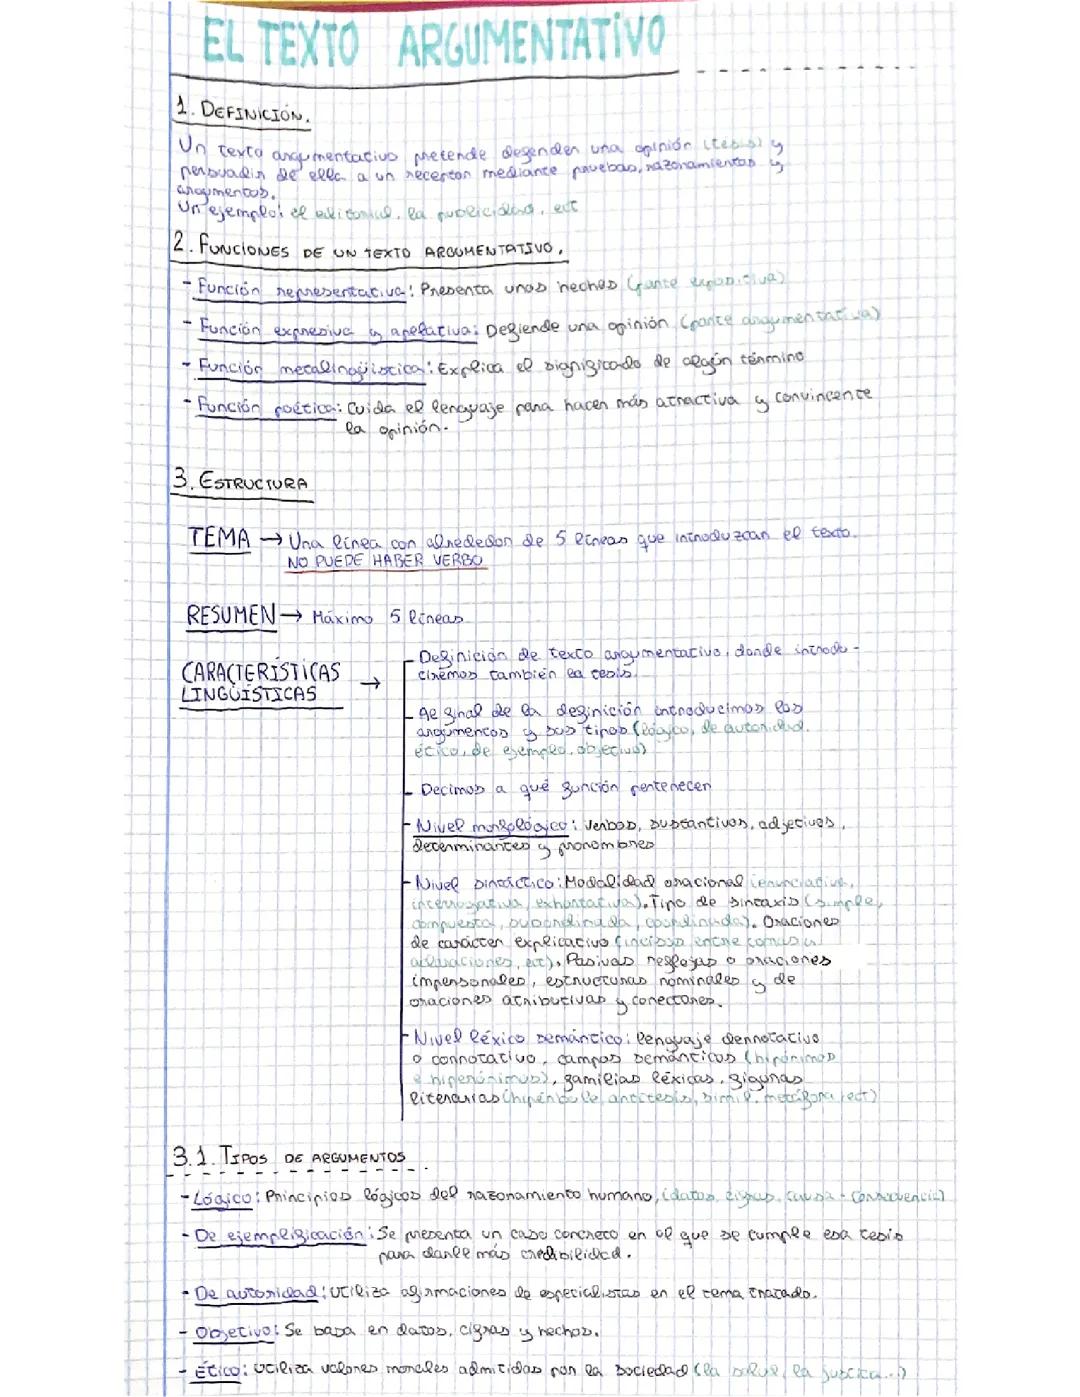 EL TEXTO ARGUMENTATIVO
1. DEFINICIÓN.
Un texto argumentativo pretende defender una opinión (tesis) y
persuadir de ella a un receptor mediante pruebas, razonamientos y
argumentos.
Un ejemplo: el editorial, la publicidad, ect
2. FUNCIONES DE UN TEXTO ARGUMENTATIVO.
- Función representativa: Presenta unos hechos (parte expositiva)
- Función expresiva y apelativa: Defiende una opinión (parte argumentativa)
- Función metalingüística: Explica el significado de algún término
- Función poética: Cuida el lenguaje para hacer más atractiva y convincente
la opinión.
3. ESTRUCTURA
TEMA → Una línea con alrededor de 5 líneas que introduzcan el texto.
NO PUEDE HABER VERBO
RESUMEN → Máximo 5 líneas
CARACTERÍSTICAS
LINGÜÍSTICAS →
- Definición de texto argumentativo, donde introdu-
ciremos también la tesis.
- Al final de la definición introducimos los
argumentos y sus tipos (lógico, de autoridad,
ético, de ejemplo, objetivo)
- Decimos a qué función pertenecen
- Nivel morfológico: verbos, sustantivos, adjetivos,
determinantes y pronombres
- Nivel sintáctico: Modalidad oracional (enunciativa,
interrogativa, exhortativa). Tipo de sintaxis (simple,
compuesta, subordinada, coordinada). Oraciones
de carácter explicativo (incisos entre comas
aclaraciones, ect). Pasivas reflejas o oraciones
impersonales, estructuras nominales y de
oraciones atributivas y conectores.
- Nivel léxico semántico: lenguaje dennotativo
o connotativo, campos semánticos (hipónimos
e hiperónimos), familias léxicas, figuras
literarias (hipérbole, antítesis, símil, metáfora, ect)
3.1. TIPOS DE ARGUMENTOS
- Lógico: Principios lógicos del razonamiento humano, (datos, cifras, causa - consecuencia)
- De ejemplificación: Se presenta un caso concreto en el que se cumple esa tesis
para darle más credibilidad.
- De autoridad: utiliza afirmaciones de especialistas en el tema tratado.
- Objetivo: Se basa en datos, cifras y hechos.
- Ético: utiliza valores morales admitidos por la sociedad (la salud, la justicia...)